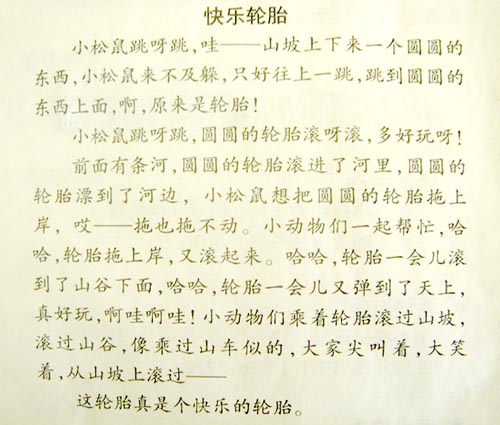 快乐轮胎
小松鼠跳呀跳,哇——山坡上下来一个圆圆的
东西,小松鼠来不及躲,只好往上一跳,跳到圆圆的
东西上面,啊,原来是轮胎!
小松鼠跳呀跳,圆圆的轮胎滚呀滚,多好玩呀!
前面有条河,圆圆的轮胎滚进了河里,圆圆的
轮胎漂到了河边,小松鼠想把圆圆的轮胎拖上
岸,哎——拖也拖不动。小动物们一起帮忙,哈
哈,轮胎拖上岸,又滚起来。哈哈,轮胎一会儿滚
到了山谷下面,哈哈,轮胎一会儿又弹到了天上,
真好玩,啊哇啊哇!小动物们乘着轮胎滚过山坡,
滚过山谷,像乘过山车似的,大家尖叫着,大笑
着,从山坡上滚过——
这轮胎真是个快乐的轮胎。